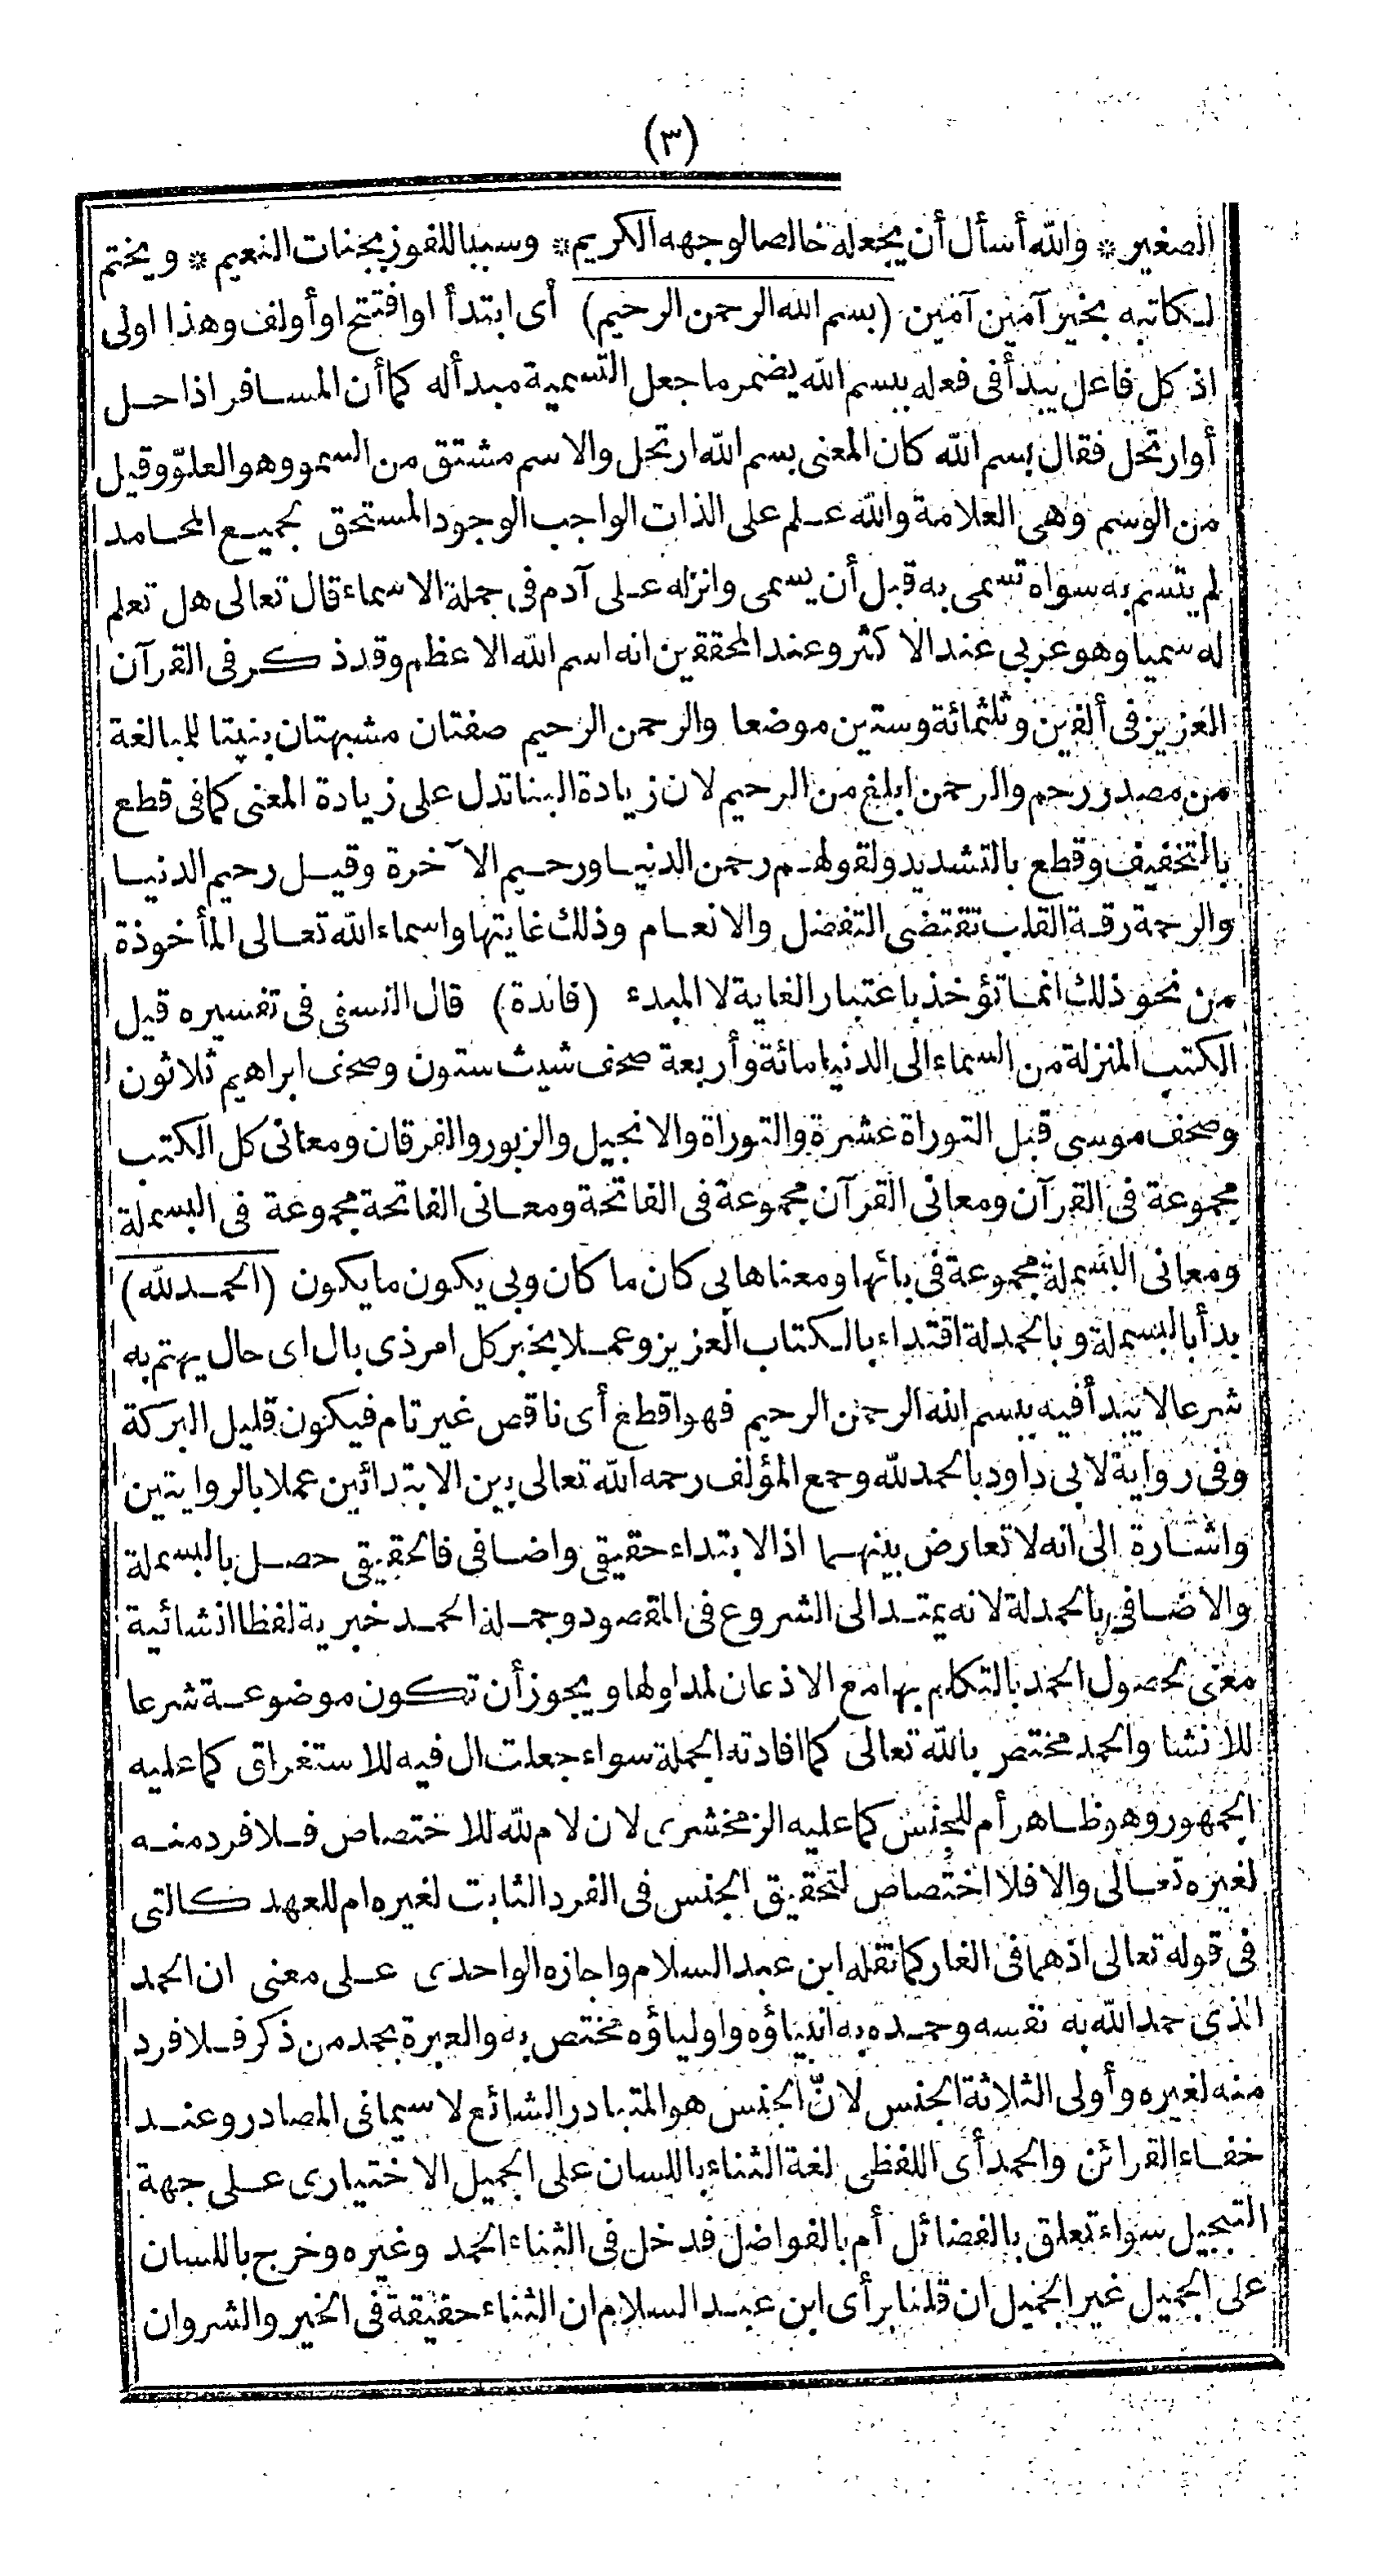 (٣)
الصغير * والله أسأل أن يجعله خالصا لوجهه الكريم * وسببا للفوز بجنات النعيم * ويختم
لكاتبه بخير آمين آمين (بسم الله الرحمن الرحيم) أى ابتدأ او افتتح او أولف وهذا اولى
اذ كل فاعل يبدأ فى فعله ببسم الله يضمر ما جعل التسمية مبدأ له كما أن المسافر اذا حل
أو ارتحل فقال بسم الله كان المعنى بسم الله ارتحل والاسم مشتق من السمو وهو العلوّ وقيل
من الوسم وهى العلامة والله علم على الذات الواجب الوجود المستحق بجميع المحامد
لم يتسم به سواه تسمى به قبل أن يسمى وانزله على آدم فى جملة الاسماء قال تعالى هل تعلم
له سميا وهو عربى عند الاكثر وعند المحققين انه اسم الله الاعظم وقد ذكر فى القرآن
العزيز فى ألفين وثلثمائة وستين موضعا والرحمن الرحيم صفتان مشبهتان بنيتا للمبالغة
من مصدر رحم والرحمن ابلغ من الرحيم لان زيادة البنا تدل على زيادة المعنى كما فى قطع
بالتخفيف وقطع بالتشديد ولقولهم رحمن الدنيا ورحيم الآخرة وقيل رحيم الدنيا
والرحمة رقة القلب تقتضى التفضل والانعام وذلك غايتها واسماء الله تعالى المأخوذة
من نحو ذلك انما تؤخذ باعتبار الغاية لا المبدء (فائدة) قال النسفى فى تفسيره قيل
الكتب المنزلة من السماء الى الدنيا مائة وأربعة صحف شيث ستون وصحف ابراهيم ثلاثون
وصحف موسى قبل التوراة عشرة والتوراة والانجيل والزبور والفرقان ومعانى كل الكتب
مجموعة فى القرآن ومعانى القرآن مجموعة فى الفاتحة ومعانى الفاتحة مجموعة فى البسملة
ومعانى البسملة مجموعة فى بائها ومعناها بى كان ما كان وبى يكون ما يكون (الحمد لله)
بدأ بالبسملة وبالحمدلة اقتداء بالكتاب العزيز وعملا بخبر كل امر ذى بال اى حال يهتم به
شرعا لا يبدأ فيه ببسم الله الرحمن الرحيم فهو اقطع أى ناقص غير تام فيكون قليل البركة
وفى رواية لابى داود بالحمد لله وجمع المؤلف رحمه الله تعالى بين الابتدائين عملا بالروايتين
واشارة الى انه لا تعارض بينهما اذ الابتداء حقيقى واضافى فالحقيقى حصل بالبسملة
والاضافى بالحمدلة لانه يمتد الى الشروع فى المقصود وجملة الحمد خبرية لفظا انشائية
معنى لحصول الحمد بالتكلم بها مع الاذعان لمدلولها ويجوز أن تكون موضوعة شرعا
للانشا والحمد مختص بالله تعالى كما افادته الجملة سواء جعلت ال فيه للاستغراق كما عليه
الجمهور وهو ظاهر أم للجنس كما عليه الزمخشرى لان لام لله للاختصاص فلا فرد منه
لغيره تعالى والا فلا اختصاص لتحقيق الجنس فى الفرد الثابت لغيره ام للعهد كالتى
فى قوله تعالى اذ هما فى الغار كما نقله ابن عبد السلام واجازه الواحدى على معنى ان الحمد
الذى حمد الله به نفسه وحمده به انبياؤه واولياؤه مختص به والعبرة بحمد من ذكر فلا فرد
منه لغيره وأولى الثلاثة الجنس لانّ الجنس هو المتبادر الشائع لا سيما فى المصادر وعند
خفاء القرائن والحمد أى اللفظى لغة الثناء باللسان على الجميل الاختيارى على جهة
التبجيل سواء تعلق بالفضائل أم بالفواضل فدخل فى الثناء الحمد وغيره وخرج باللسان
على الجميل غير الجميل ان قلنا برأى ابن عبد السلام ان الثناء حقيقة فى الخير والشر وان